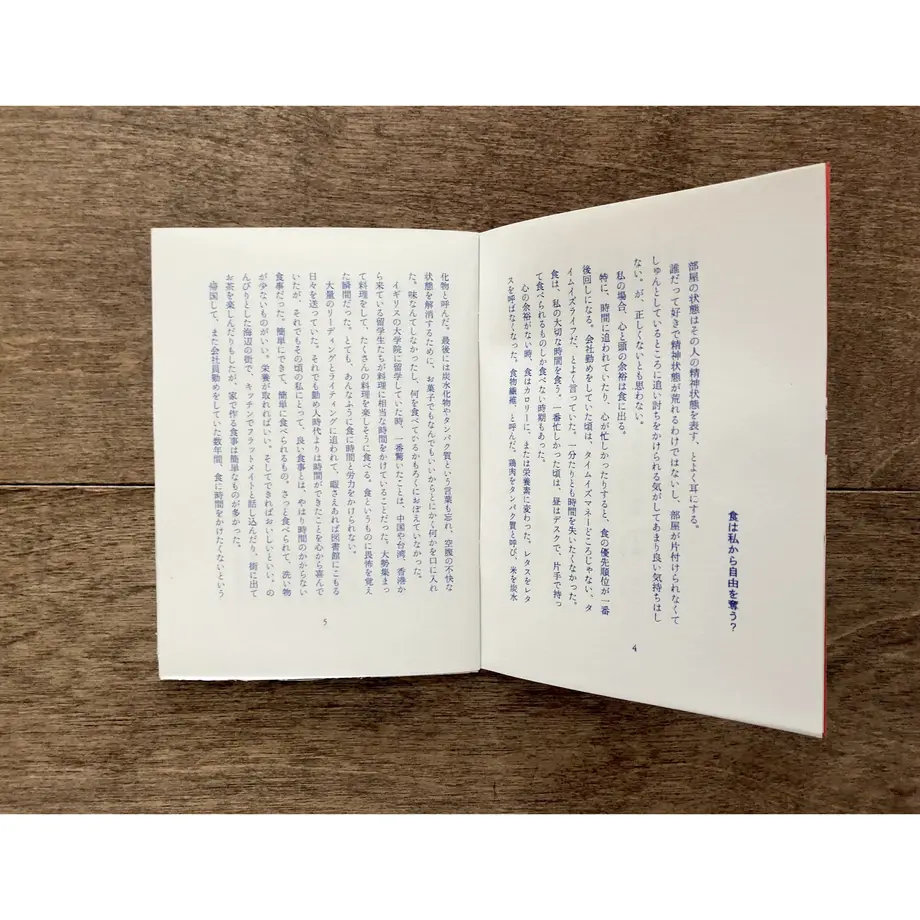 食は私から自由を奪う？
部屋の状態はその人の精神状態を表す、とよく耳にする。
誰だって好きで精神状態が荒れるわけではないし、部屋が片付けられなくて
しゅんとしているところに追い討ちをかけられる気がしてあまり良い気持ちはし
ない。が、正しくないとも思わない。
私の場合、心と頭の余裕は食に出る。
特に、時間に追われていたり、心が忙しかったりすると、食の優先順位が一番
後回しになる。会社勤めをしていた頃は、タイムイズマネーどころじゃない、タ
イムイズライフだ、とよく言っていた。一分たりとも時間を失いたくなかった。
食は、私の大切な時間を食う。一番忙しかった頃は、昼はデスクで、片手で持っ
て食べられるものしか食べない時期もあった。
心の余裕がない時、食はカロリーに、または栄養素に変わった。レタスをレタ
スを呼ばなくなった。食物繊維、と呼んだ。鶏肉をタンパク質と呼び、米を炭水
4
化物と呼んだ。最後には炭水化物やタンパク質という言葉も忘れ、空腹の不快な
状態を解消するために、お菓子でもなんでもいいからとにかく何かを口に入れ
た。味なんてしなかったし、何を食べているかもろくにおぼえていなかった。
イギリスの大学院に留学していた時、一番驚いたことは、中国や台湾、香港か
ら来ている留学生たちが料理に相当な時間をかけていることだった。大勢集まっ
て料理をして、たくさんの料理を楽しそうに食べる。食というものに畏怖を覚え
た瞬間だった。とても、あんなふうに食に時間と労力をかけられない。
大量のリーディングとライティングに追われて、暇さえあれば図書館にこもる
日々を送っていた。それでも勤め人時代よりは時間ができたことを心から喜んで
いたが、それでもその頃の私にとって、良い食事とは、やはり時間のかからない
食事だった。簡単にできて、簡単に食べられるもの。さっと食べられて、洗い物
が少ないものがいい。栄養が取れればいい。そしてできればおいしいといい。の
んびりとした海辺の街で、キッチンでフラットメイトと話し込んだり、街に出て
お茶を楽しんだりもしたが、家で作る食事は簡単なものが多かった。
帰国して、また会社員勤めをしていた数年間、食に時間をかけたくないという
5